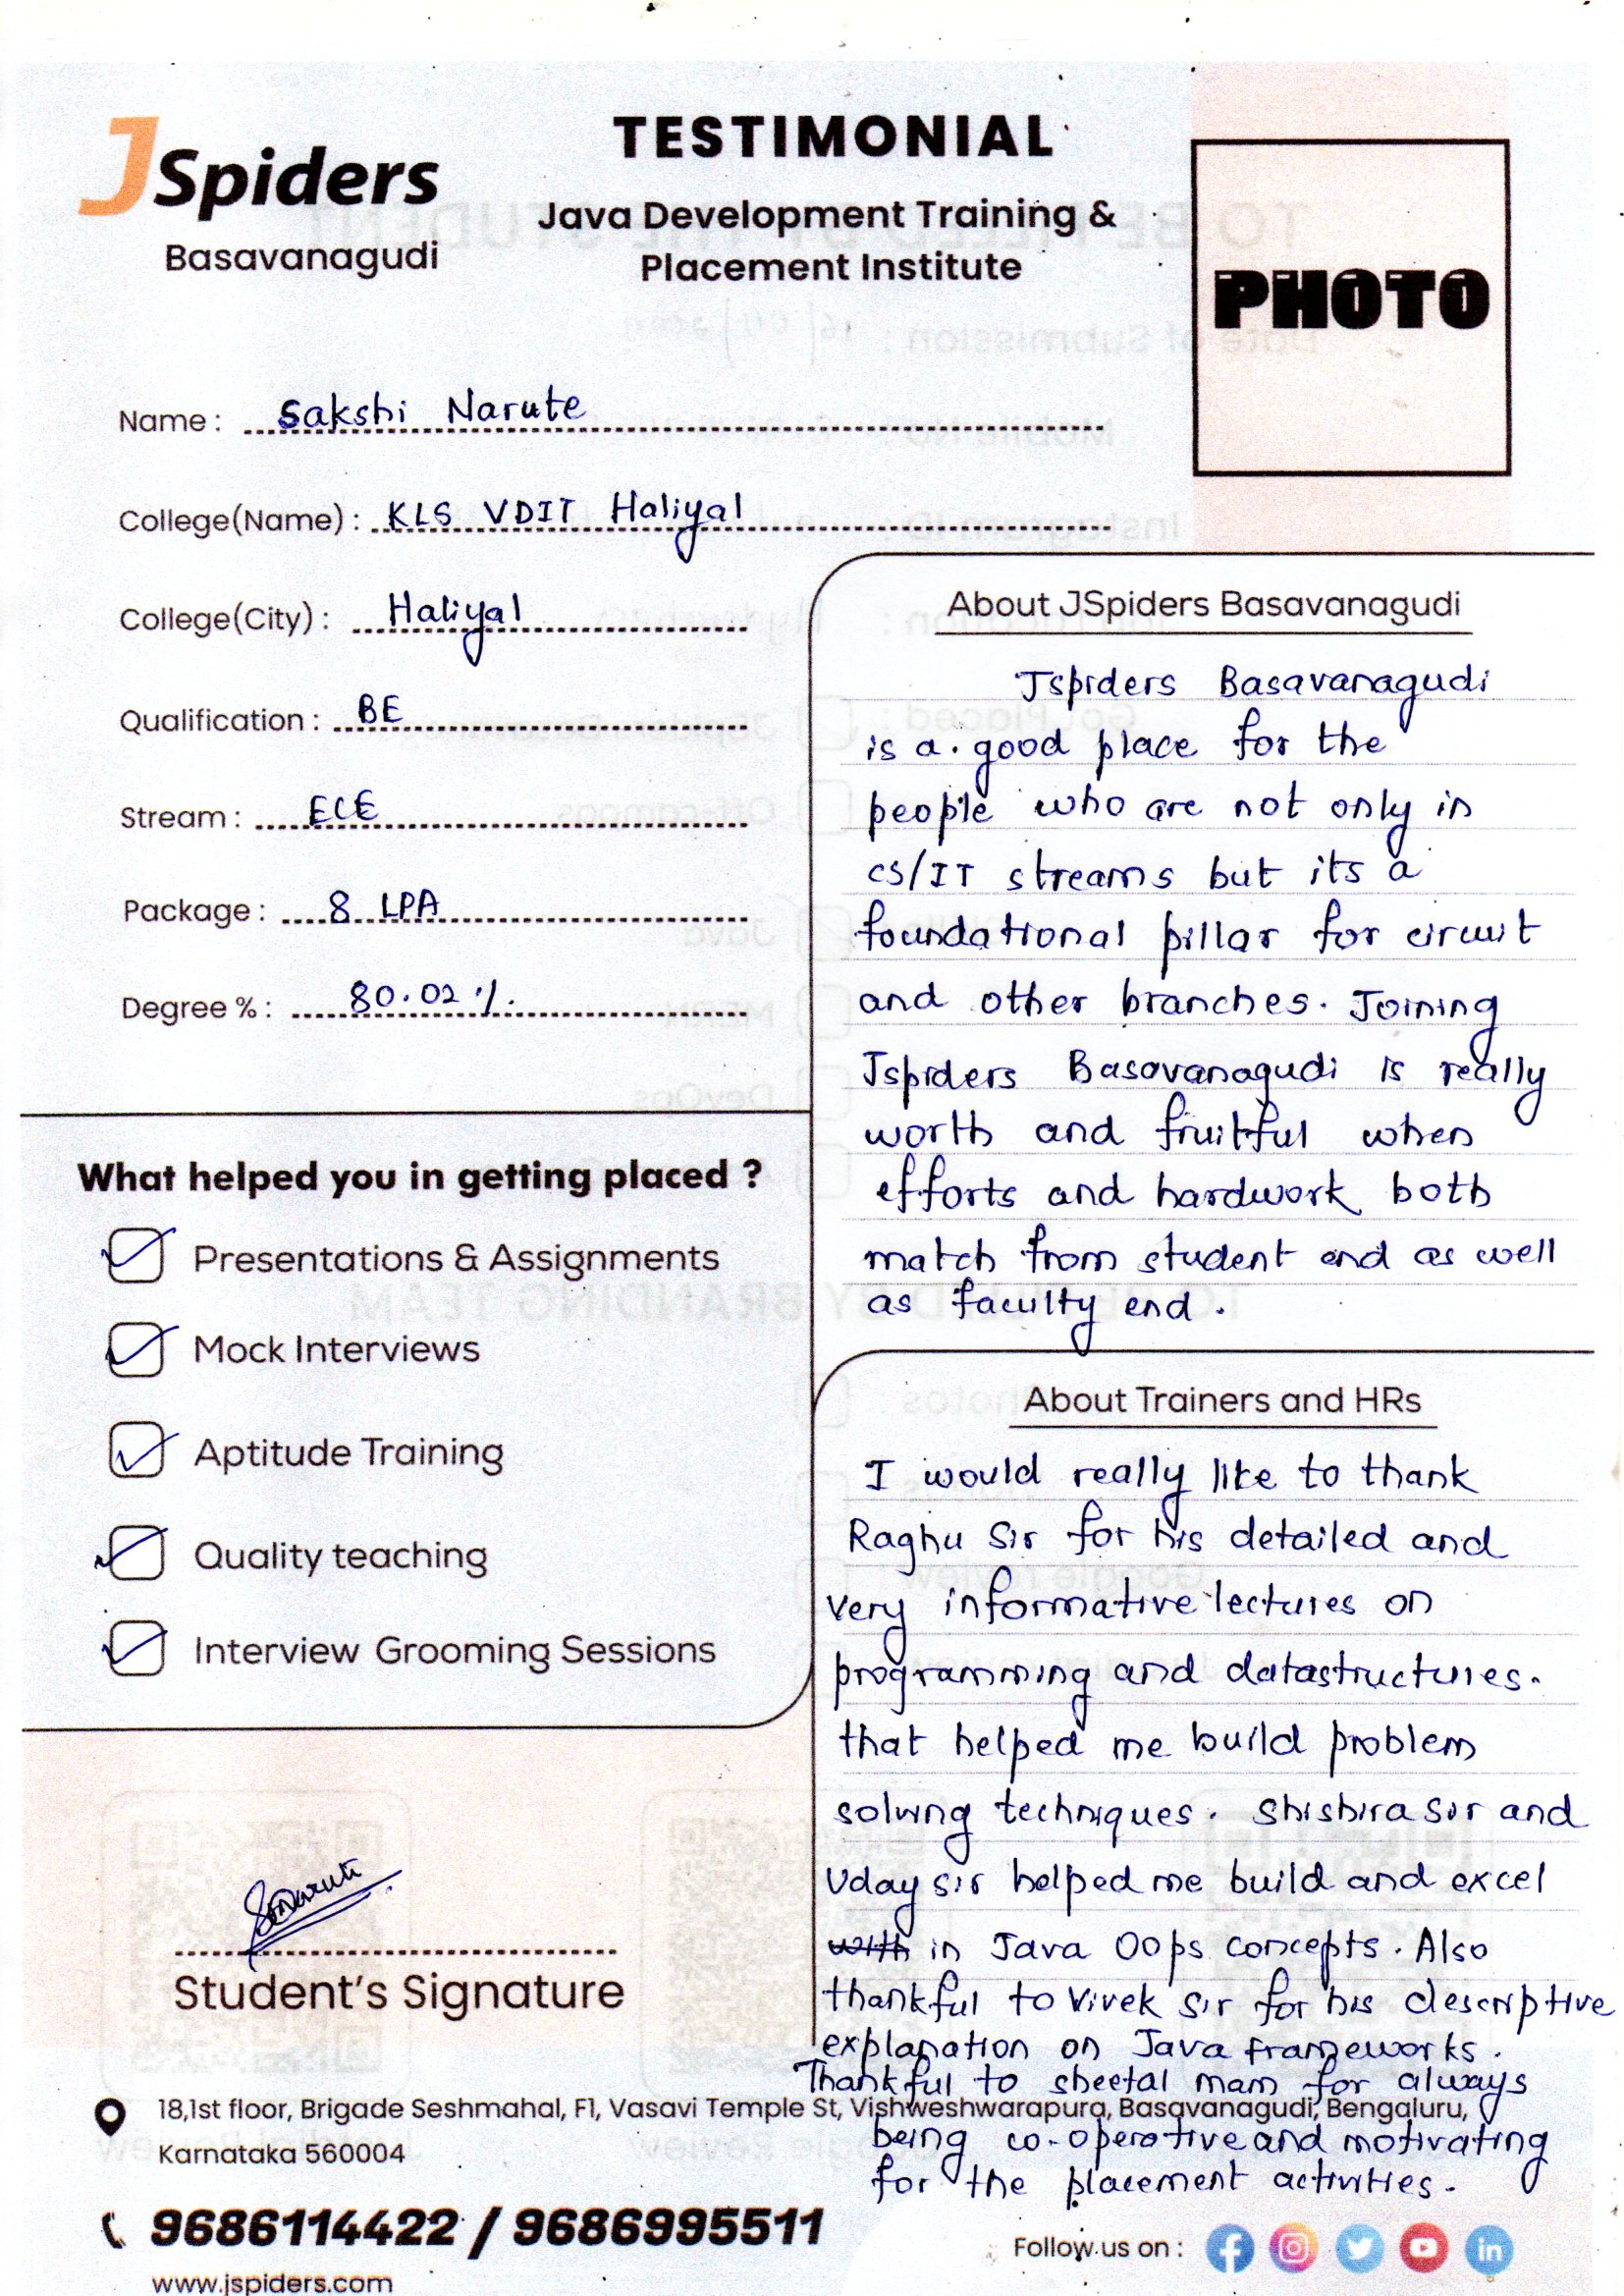 JSpiders
Basavanagudi
TESTIMONIAL
Java Development Training &
Placement Institute
PHOTO
Name : Sakshi Narute
College(Name) : KLS VDIT Haliyal
College(City) : Haliyal
Qualification : BE
Stream : ECE
Package : 8 LPA
Degree % : 80.02 %.
What helped you in getting placed ?
Presentations & Assignments
Mock Interviews
Aptitude Training
Quality teaching
Interview Grooming Sessions
Student's Signature
About JSpiders Basavanagudi
Jspiders Basavanagudi
is a good place for the
people who are not only in
CS/IT streams but its a
foundational pillar for circuit
and other branches. Joining
Jspiders Basavanagudi is really
worth and fruitful when
efforts and hardwork both
match from student end as well
as faculty end.
About Trainers and HRs
I would really like to thank
Raghu Sir for his detailed and
very informative lectures on
programming and datastructures.
that helped me build problem
solving techniques. Shishira Sir and
Uday sir helped me build and excel
with in Java Oops concepts. Also
thankful to Vivek Sir for his descriptive
explanation on Java frameworks.
Thankful to sheetal mam for always
being co-operative and motivating
for the placement activities.
18,1st floor, Brigade Seshmahal, F1, Vasavi Temple St, Vishweshwarapura, Basavanagudi, Bengaluru,
Karnataka 560004
9686114422 / 9686995511
www.jspiders.com
Follow us on :